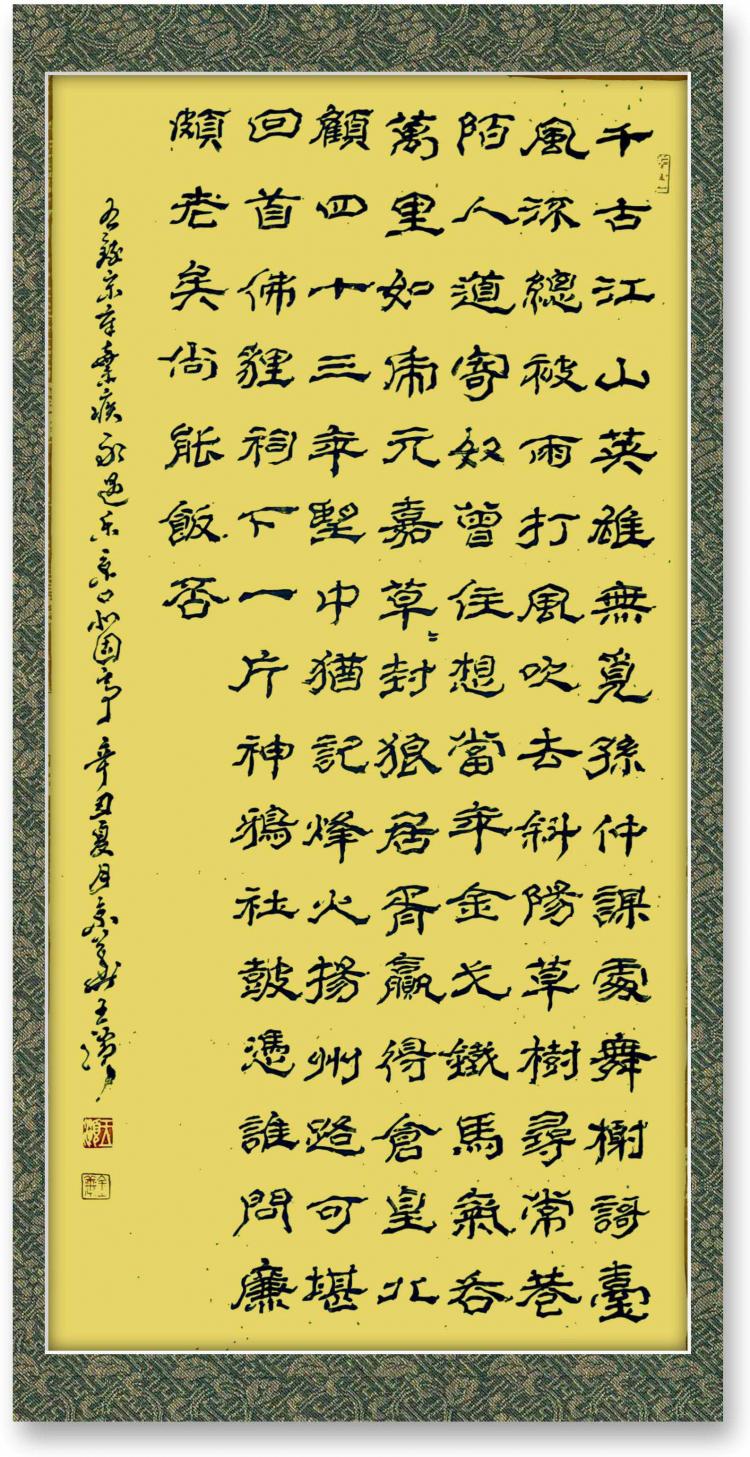 千古江山英雄無覓孫仲謀處舞榭謌臺
風流總被雨打風吹去斜陽草樹尋常巷
陌人道寄奴曾住想當年金戈鐵馬氣吞
萬里如虎元嘉草封狼居胥贏得倉皇北
顧四十三年望中猶記烽火揚州路可堪
回首佛貍祠下一片神鴉社鼓憑誰問廉
頗老矣尚能飯否
右錄宋辛棄疾永遇樂京口北固亭 辛丑夏月京華王